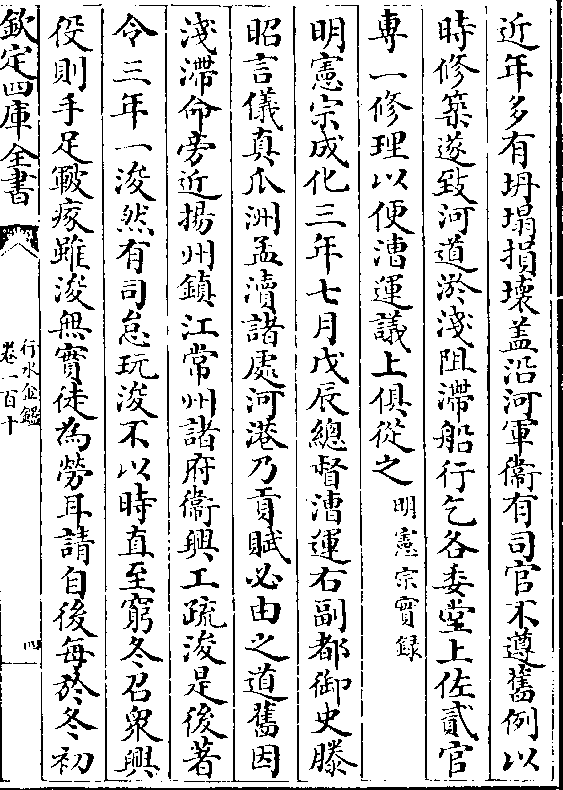 近年多有坍塌損壞盖沿河軍衞有司官不遵舊例以
時修築遂致河道淤淺阻滯船行乞各委堂上佐貳官
専一修理以便漕運議上俱從之明憲宗實録
明憲宗成化三年七月戊辰總督漕運右副都御史滕
昭言儀真瓜洲孟瀆諸處河港乃貢賦必由之道舊因
淺滯命旁近揚州鎮江常州諸府衞興工疏浚是後著
令三年一浚然有司怠玩浚不以時直至窮冬召衆興
役則手足皸瘃雖浚無實徒為勞耳請自後每於冬初
欽定四庫全書
行水金鑑
卷一百十
四